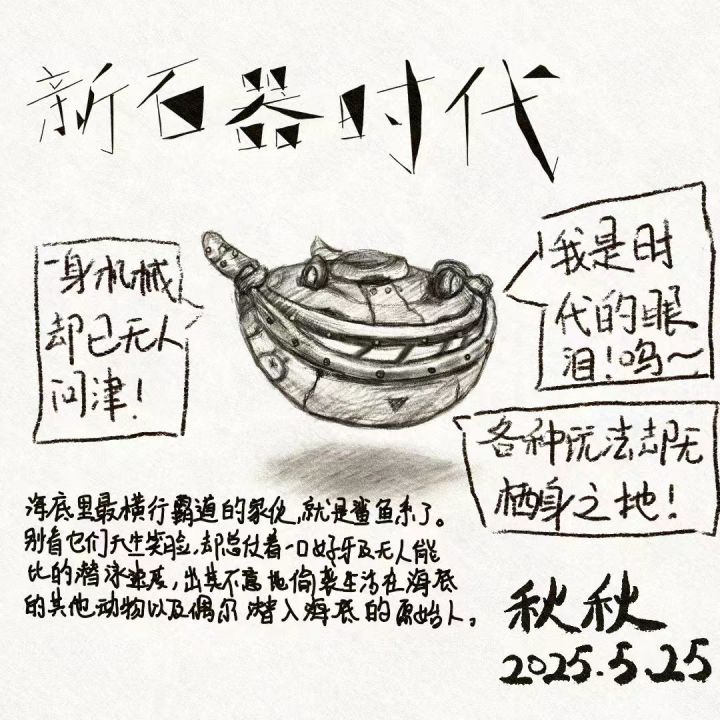 新石器时代
一身机械
却已无人
问津！
我是时
代的眼
泪！呜~
各种玩法却无
栖身之地！
海底里最横行霸道的家伙，就是鲨鱼系了。
别看它们天生笑脸，却总仗着一口好牙及无人能
比的潜泳速度，出其不意地偷袭生活在海底
的其他动物以及偶尔潜入海底的原始人。
秋秋
2025.5.25